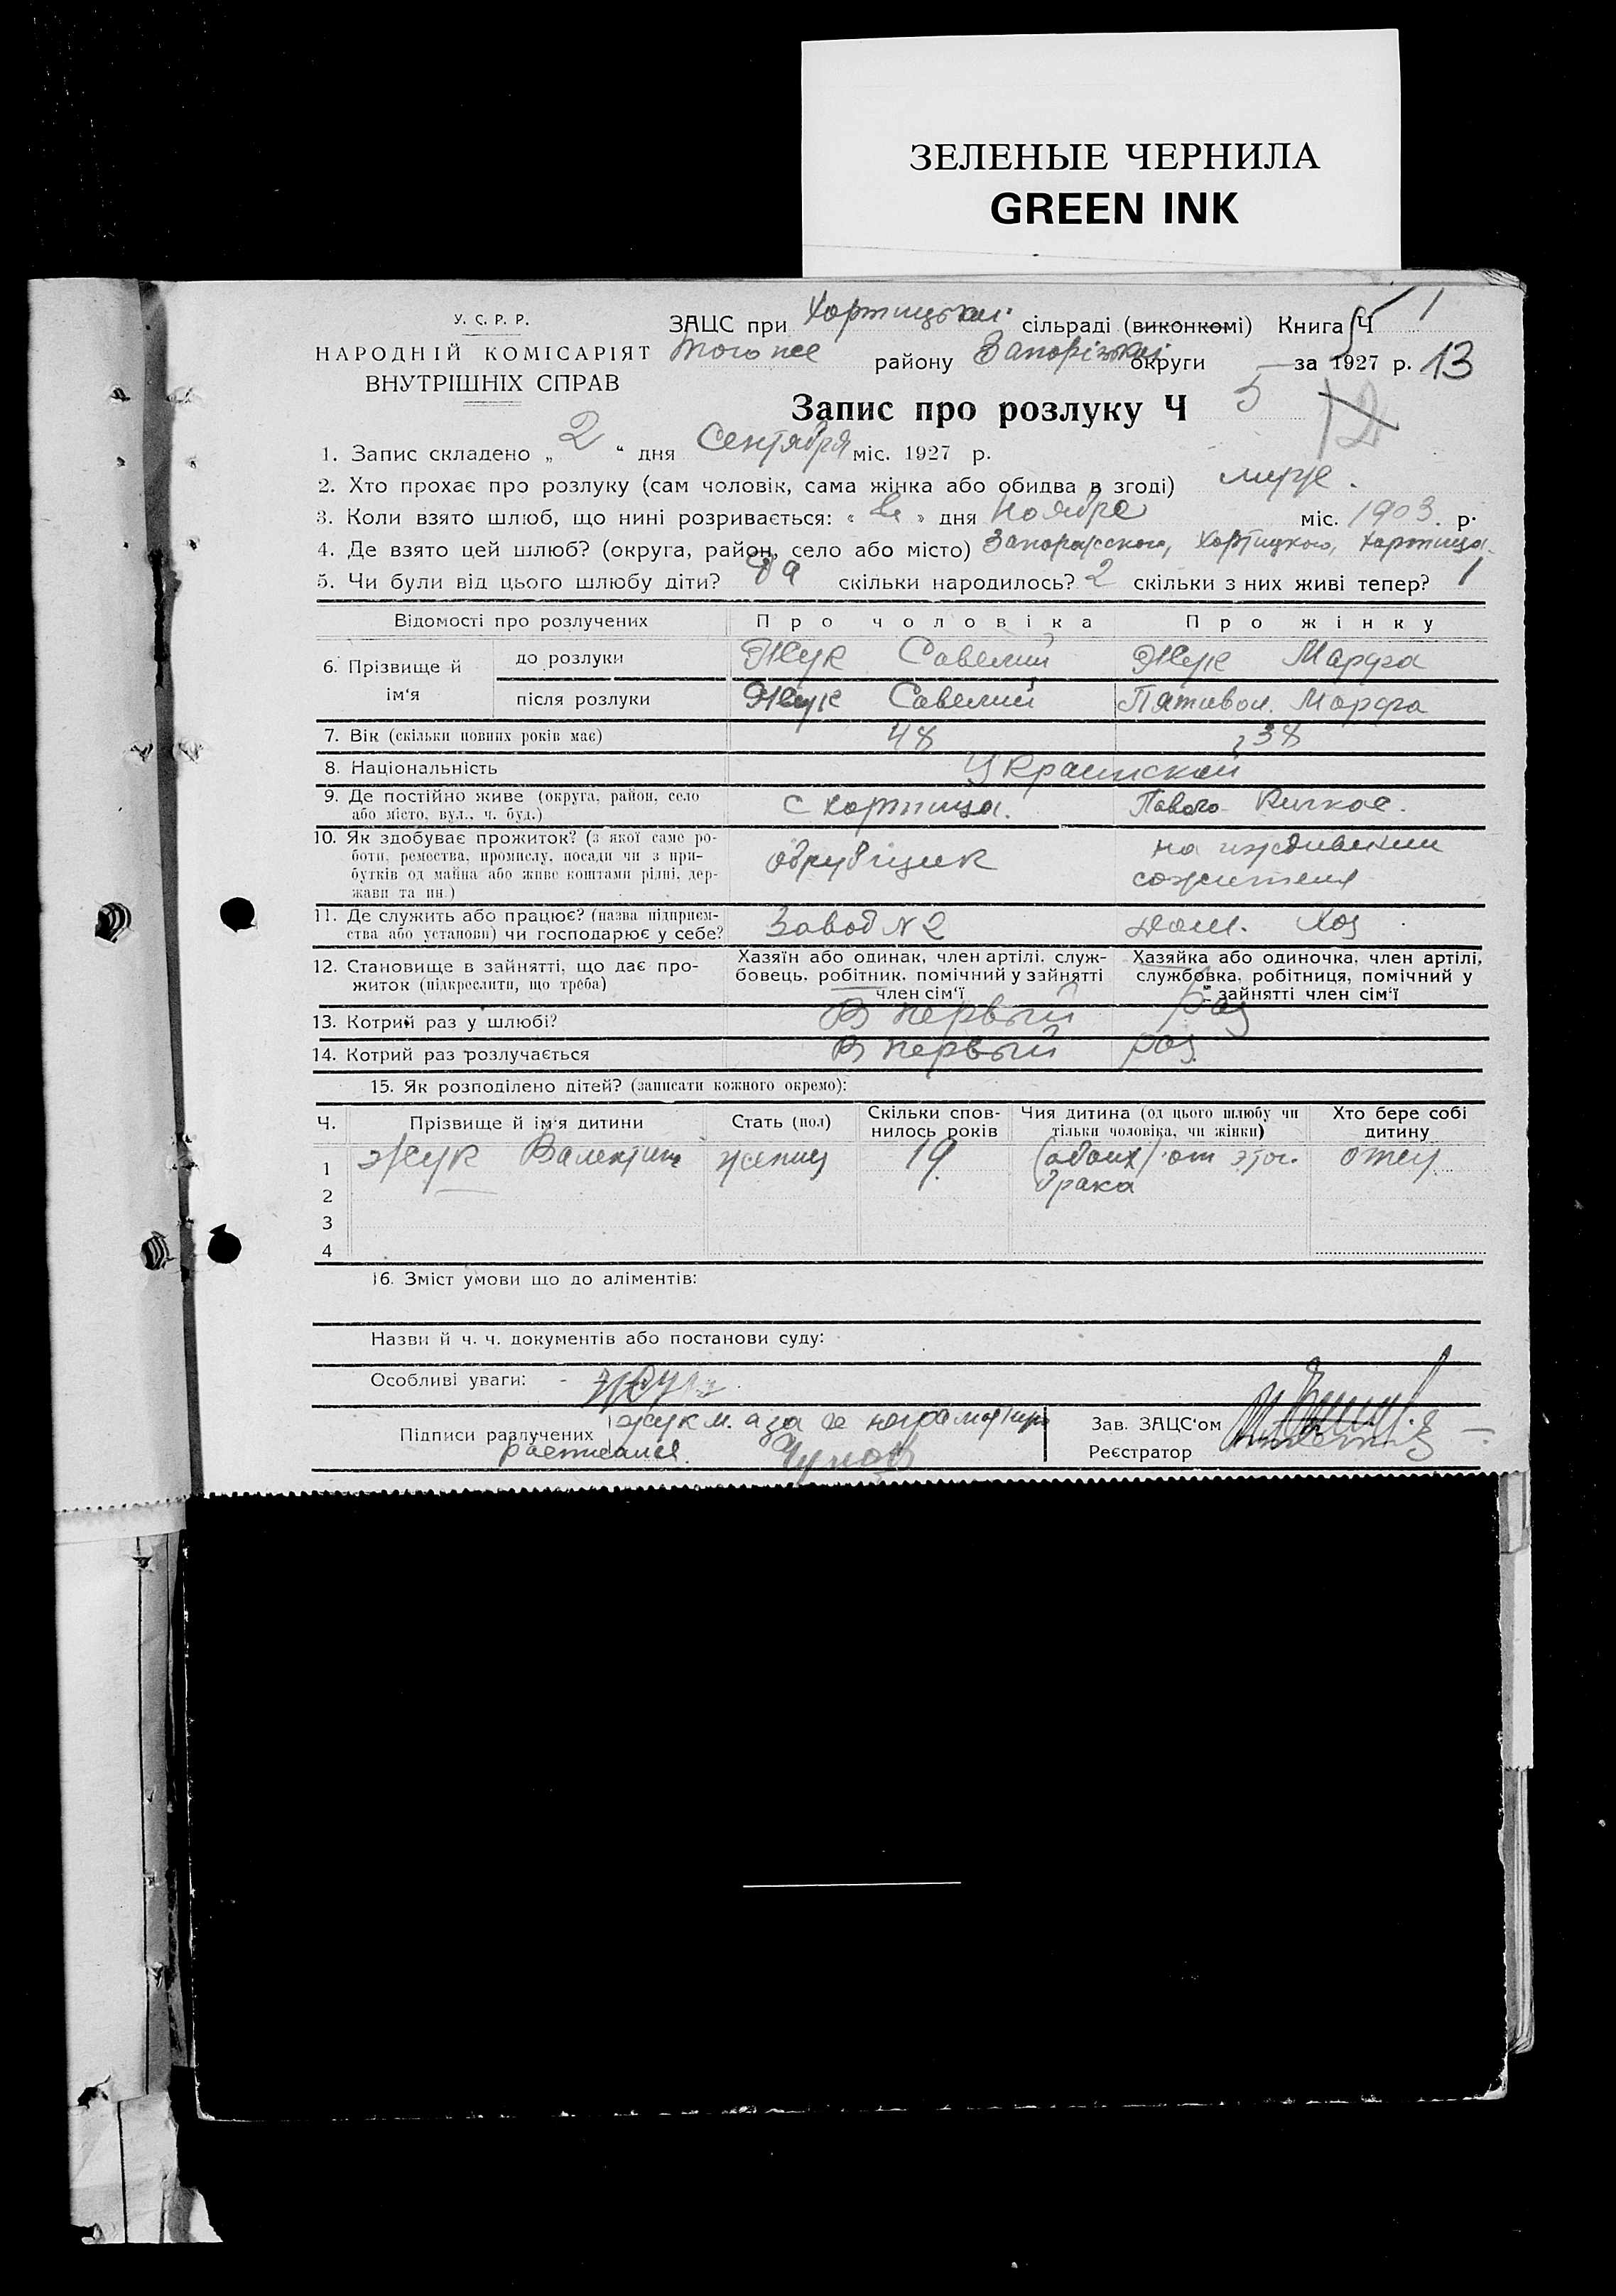 ЗЕЛЕНЫЕ ЧЕРНИЛА
GREEN INK
У. С. Р. Р.
НАРОДНІЙ КОМІСАРІЯТ
ВНУТРІШНІХ СПРАВ
ЗАЦС при Хортицькій сільраді (виконкомі) Книга Ч 1
того же району Запорізької округи за 1927 р. 13
Запис про розлуку Ч 5 12
1. Запис складено „ 2 “ дня Сентября міс. 1927 р.
2. Хто прохає про розлуку (сам чоловік, сама жінка або обидва в згоді)
3. Коли взято шлюб, що нині розривається: « » дня Ноября міс. 1903. р.
4. Де взято цей шлюб? (округа, район, село або місто) Запорожского, Хортицкого, Хортица.
5. Чи були від цього шлюбу діти? да скільки народилось? 2 скільки з них живі тепер? 1
Відомості про розлучених Про чоловіка Про жінку
6. Прізвище й ім‘я до розлуки Жук Савелий Жук Марфа
після розлуки Жук Савелий Пятивол. Марфа
7. Вік (скільки повних років має) 48 38
8. Національність Украинской
9. Де постійно живе (округа, район, село або місто, вул., ч. буд.) с Хортица. Павло- Кичкас.
10. Як здобуває прожиток? (з якої саме роботи, ремества, промислу, посади чи з прибутків од майна або живе коштами рідні, держави та ин.) обрубщик на иждивении сожителя
11. Де служить або працює? (назва підприємства або установи) чи господарює у себе? Завод N 2 дом. хоз
12. Становище в зайнятті, що дає прожиток (підкреслити, що треба) Хазяїн або одинак, член артілі, службовець, робітник, помічний у зайнятті член сім‘ї Хазяйка або одиночка, член артілі, службовка, робітниця, помічний у зайнятті член сім‘ї
13. Котрий раз у шлюбі? В первый раз
14. Котрий раз розлучається В первый раз
15. Як розподілено дітей? (записати кожного окремо):
Ч. Прізвище й ім‘я дитини Стать (пол) Скільки сповнилось років Чия дитина (од цього шлюбу чи тільки чоловіка, чи жінки) Хто бере собі дитину
1 Жук Валентин 19 (обоих) от этог. брака отец
2
3
4
16. Зміст умови що до аліментів:
Назви й ч. ч. документів або постанови суду:
Особливі уваги: - Жук
Підписи разлучених Жук М. а за ее неграмотную Зав. ЗАЦС‘ом
расписался. Реєстратор